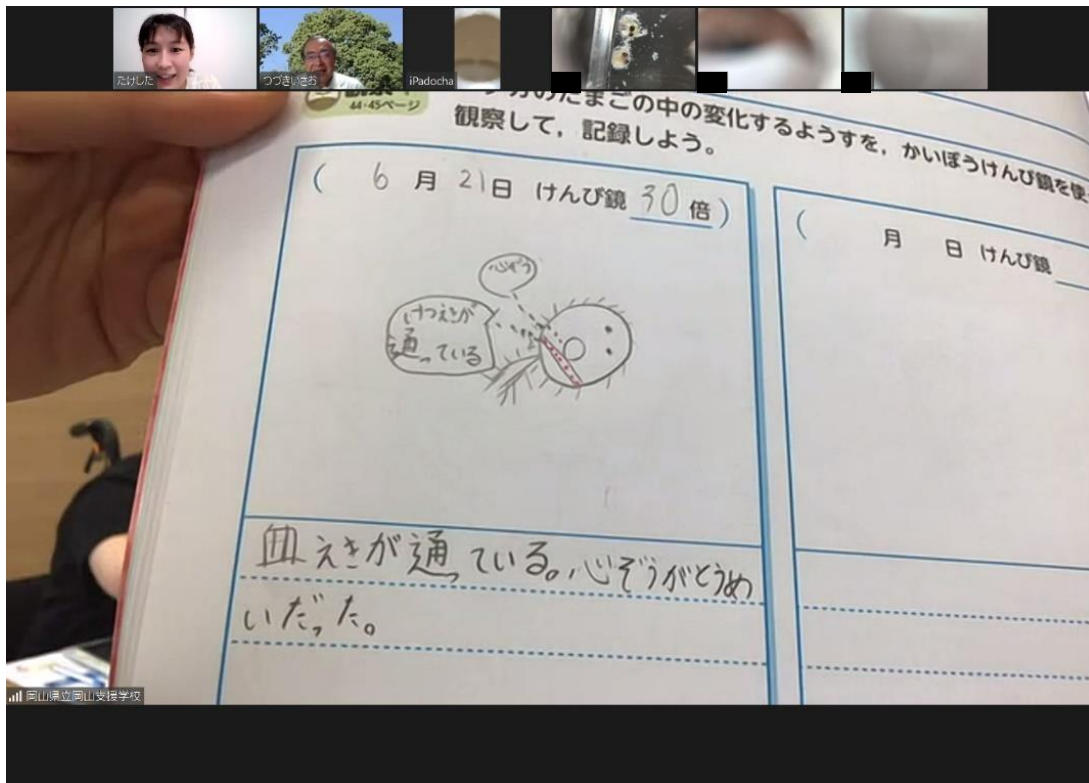 たけした
つづきいさお
iPadocha
44・45ページ
のたまごの中の変化するようすを，かいぼうけんび鏡を使
観察して，記録しよう。
( 6 月 21 日 けんび鏡 30 倍 )
心ぞう
けつえきが
通っている
血えきが通っている。心ぞうがとうめ
いだった。
( 月 日 けんび鏡
岡山県立岡山支援学校